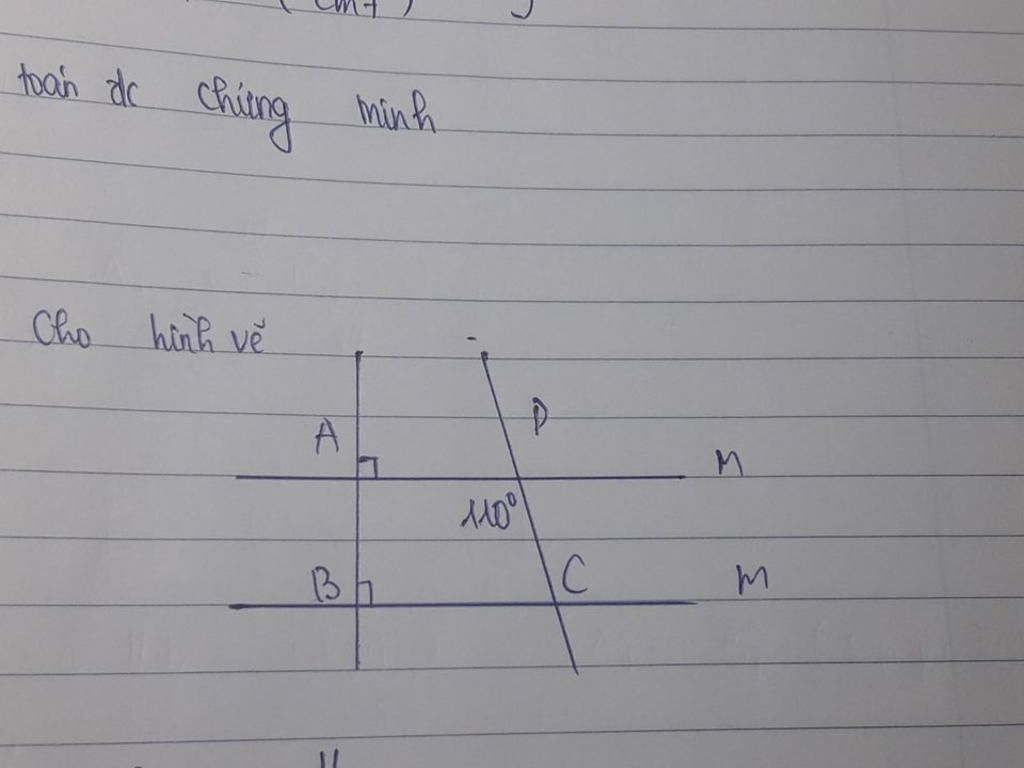 toán dc chứng minh
Cho hình vẽ
D
A
M
110°
B
C
M